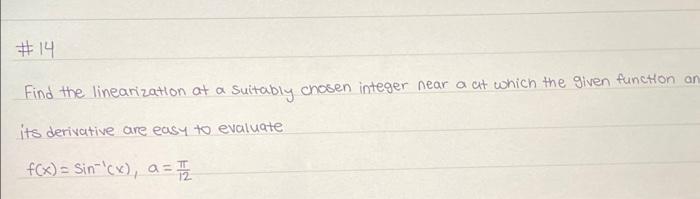 #14
Find the linearization at a suitably chosen integer near a at which the given function an
its derivative are easy to evaluate
f(x) = sin⁻¹(x), a = π/12